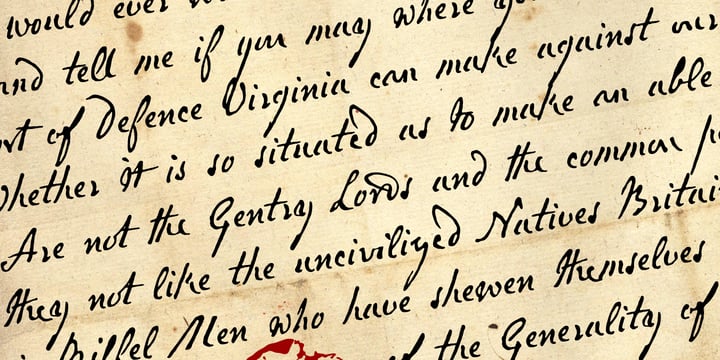 would ever
and tell me if you may where
of Defence Virginia can make against our
Whether it is so situated as to make an able
Are not the Gentry Lords and the common
they not like the uncivilized Natives
Riffel Men who have shewen themselves
of the Generality of